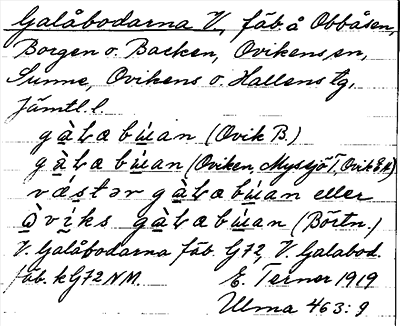 Galåbodarna V., fäb. å Obbåsen,
Borgen o. Backen, Ovikens sn,
Sunne, Ovikens o. Hallens tg,
Jämtl. l.
gàlæbúan (Ovik B.)
gàlæbúan (Oviken, Myssjö T, Ovik E.H.)
væstər gàlæbúan eller
òvíks gàlæbúan (Börtn.)
V. Galåbodarna fäb. G72, V. Galabod.
fäb. kG72 NM. E. Terner 1919
Ulma 463:9